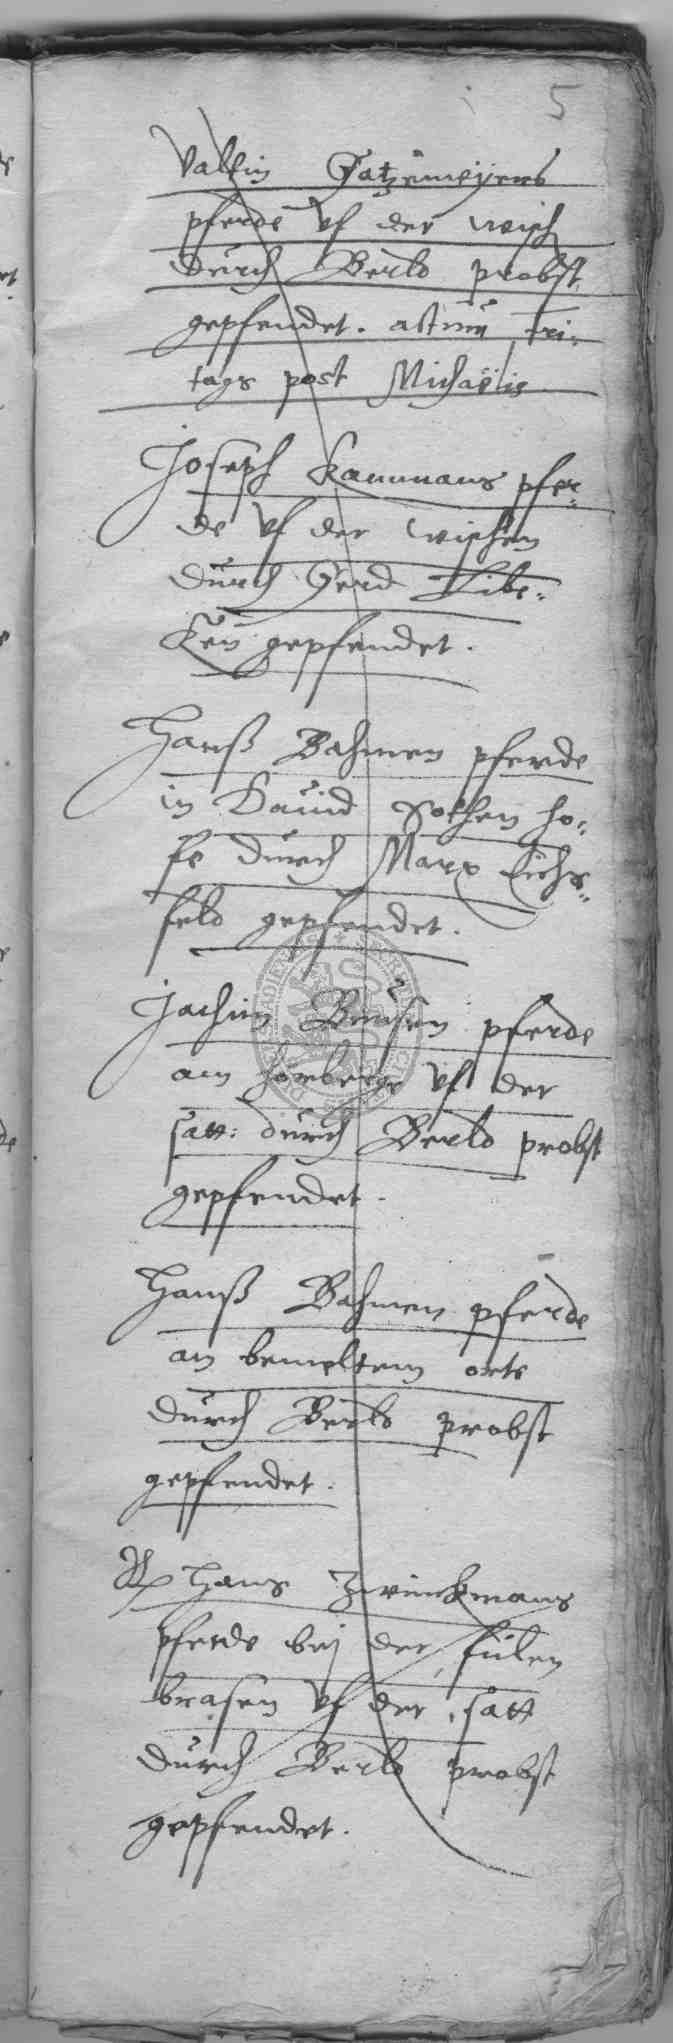 5
Valtin Gatzemeyers
pferde vf der wisch
durch Berld probst
gepfendet. actum Fri-
tags post Michaëlis
Joseph Kaunnans pfer-
de vf der wischen
durch Gerd Libe-
ken gepfendet.
Hanß Bahmen pferde
in Dauid Sothen ho-
fe durch Marx Eichs-
feld gepfendet.
Jachim Bausen pferde
am horberge vf der
satt: durch Berld probst
gepfendet.
Hanß Bahmen pferde
an bemeltem orte
durch Berld probst
gepfendet.
Hans Zwinckmans
pferde bej der fulen
brasen vf der satt
durch Berld probst
gepfendet.